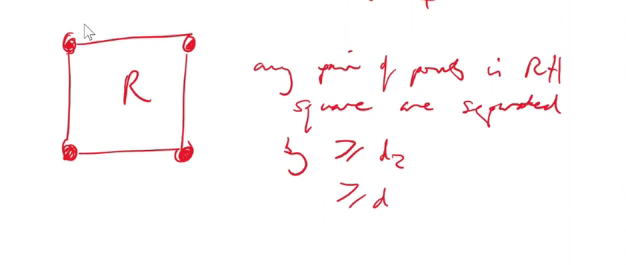 R
any pair of points in RH
square are separated
by ≥ d₂
≥ d